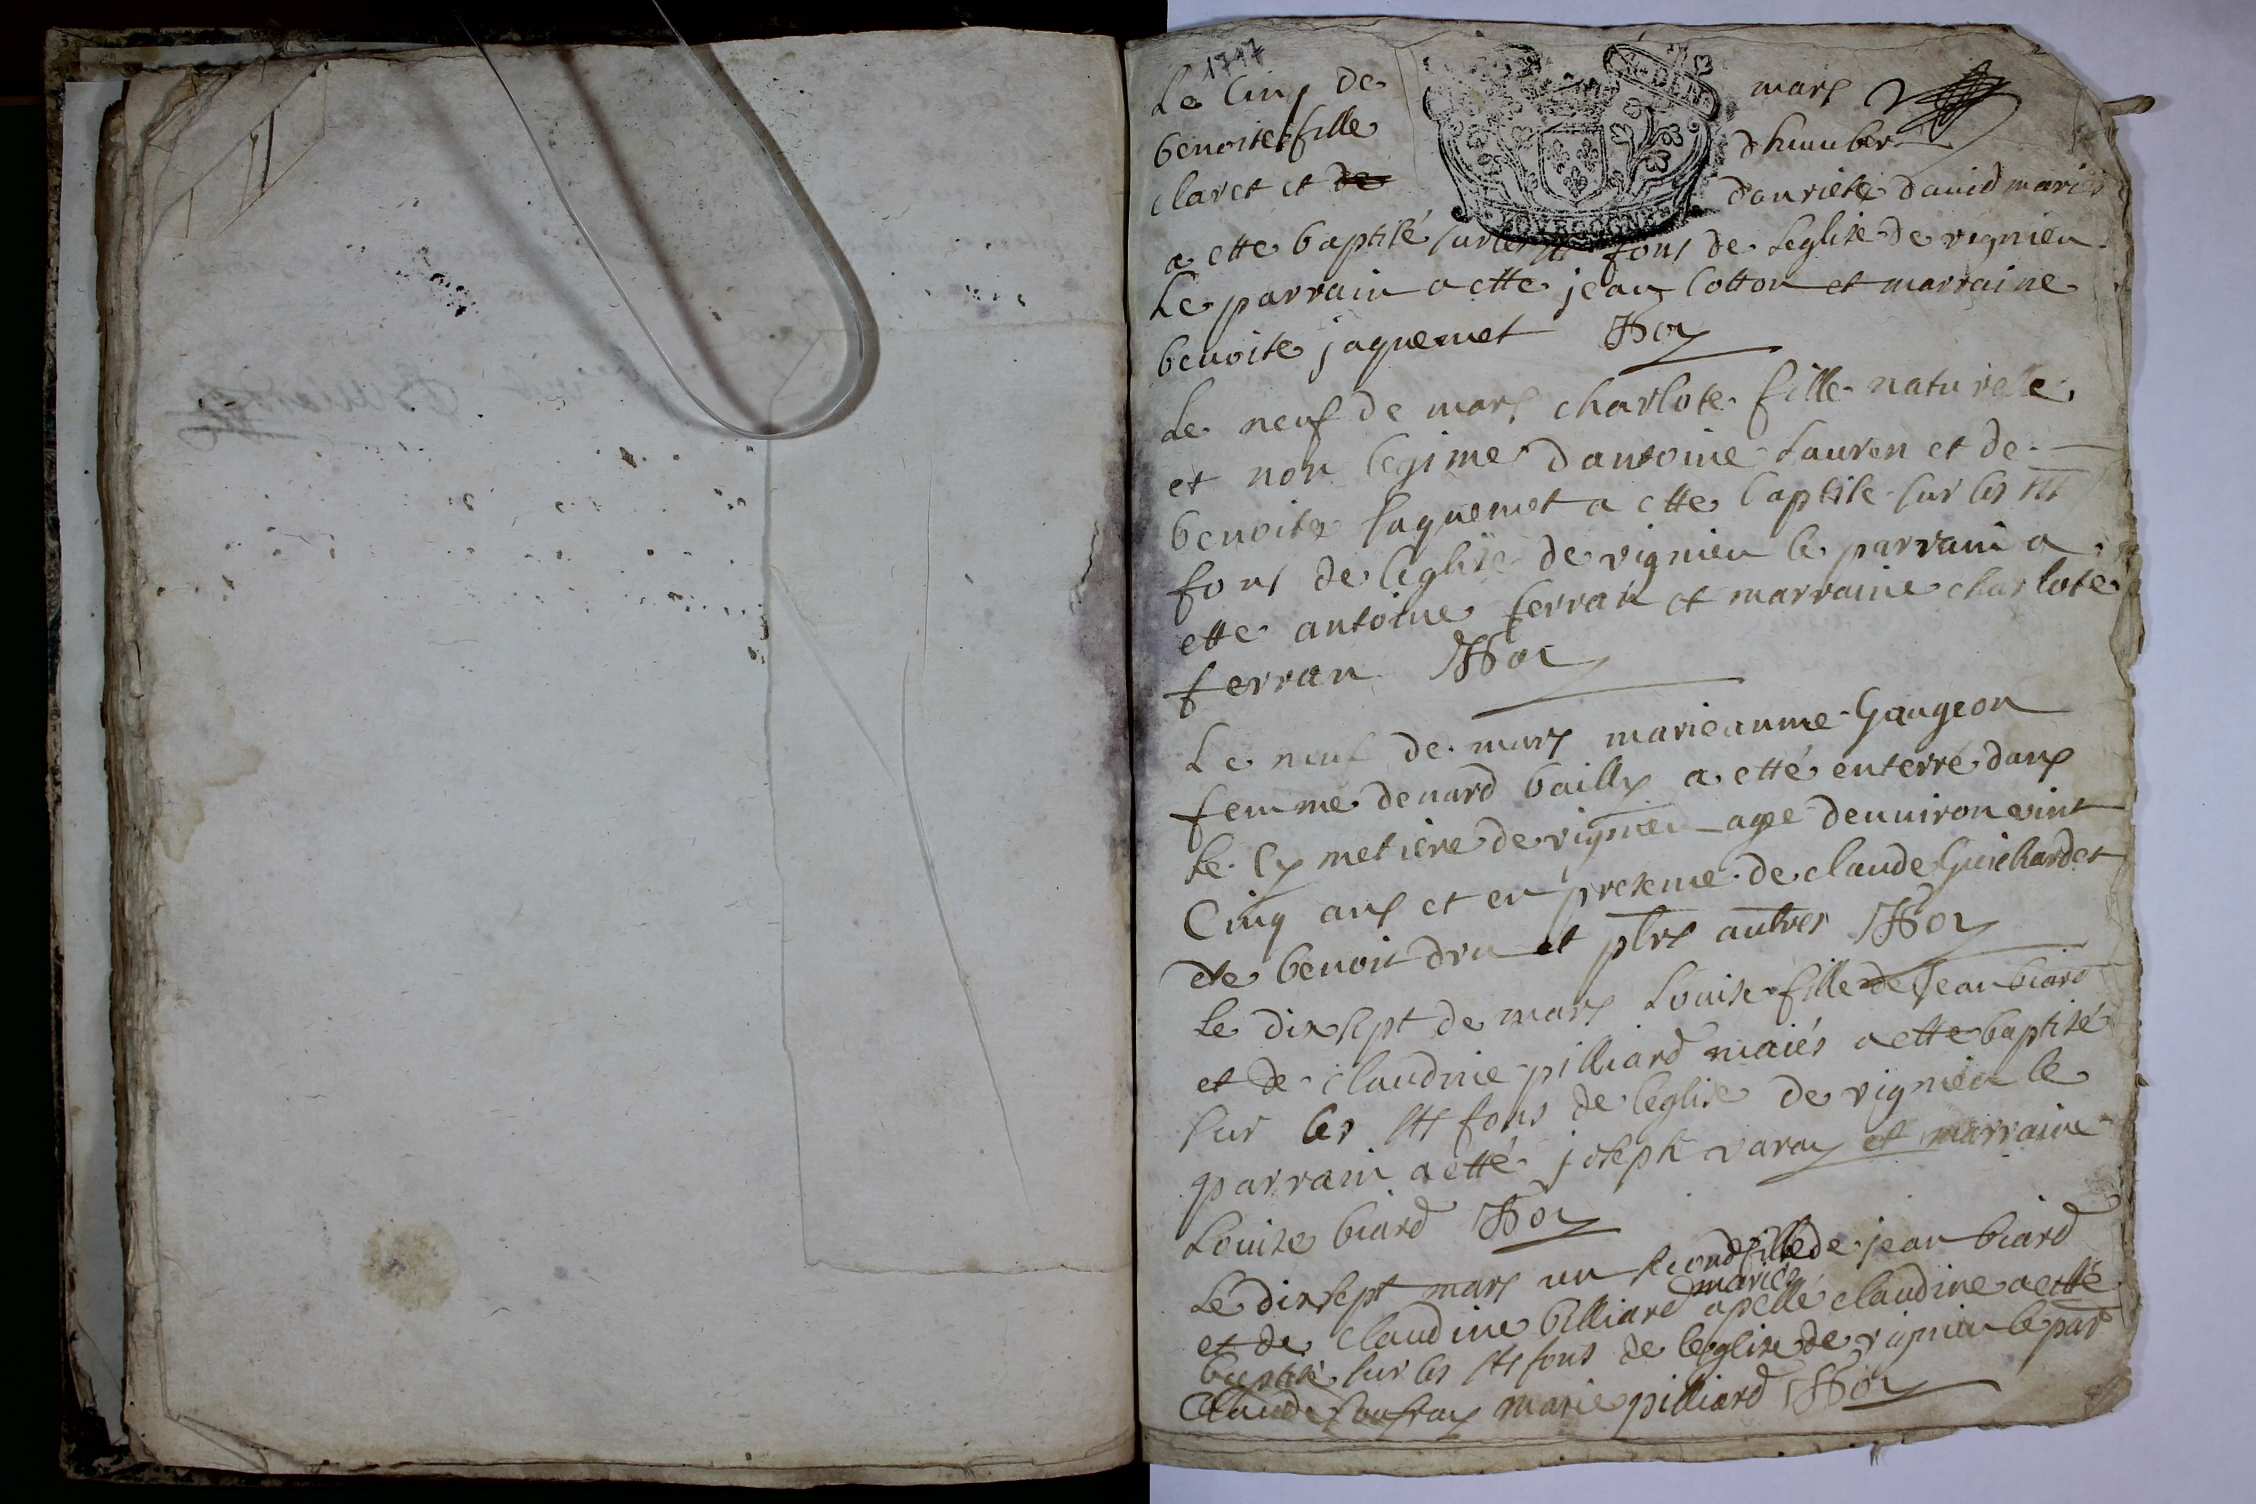 1717
Le Cinq de mars
benoite fille dhumber
claret et de danriete david mariés
a ette baptisé sur les sts fons de leglise de vignieu
Le parrain a ette jean Cotton et marraine
benoite jaquemet
Le neuf de mars charlote fille naturelle
et non legime dantoine Lauren et de
benoite Jaquemet a ette baptise sur les sts
fons de leglise de vignieu le parrain a
ette antoine ferran et marraine charlote
ferran
Le neuf de mars marieanne Gaugeon
femme denard bailly a etté enterré dans
le Cymetiere de vignieu agee denuiron vint
Cinq ans et en presence de claude Guichard et
de benoit dru et plrs autres
Le dix sept de mars Louise fille de Jean biard
et de claudine pilliard maiés a ette baptisé
sur les sts fons de leglise de vignieu le
parrain a etté joseph varay et marraine
Louise biard
Le dixsept mars un second fille de jean biard
mariés
et de Claudine billiard apellé claudine a etté
baptisé sur les sts fons de leglise de vignieu le par
Claude marie pilliard
DEN
BOURGOGNE